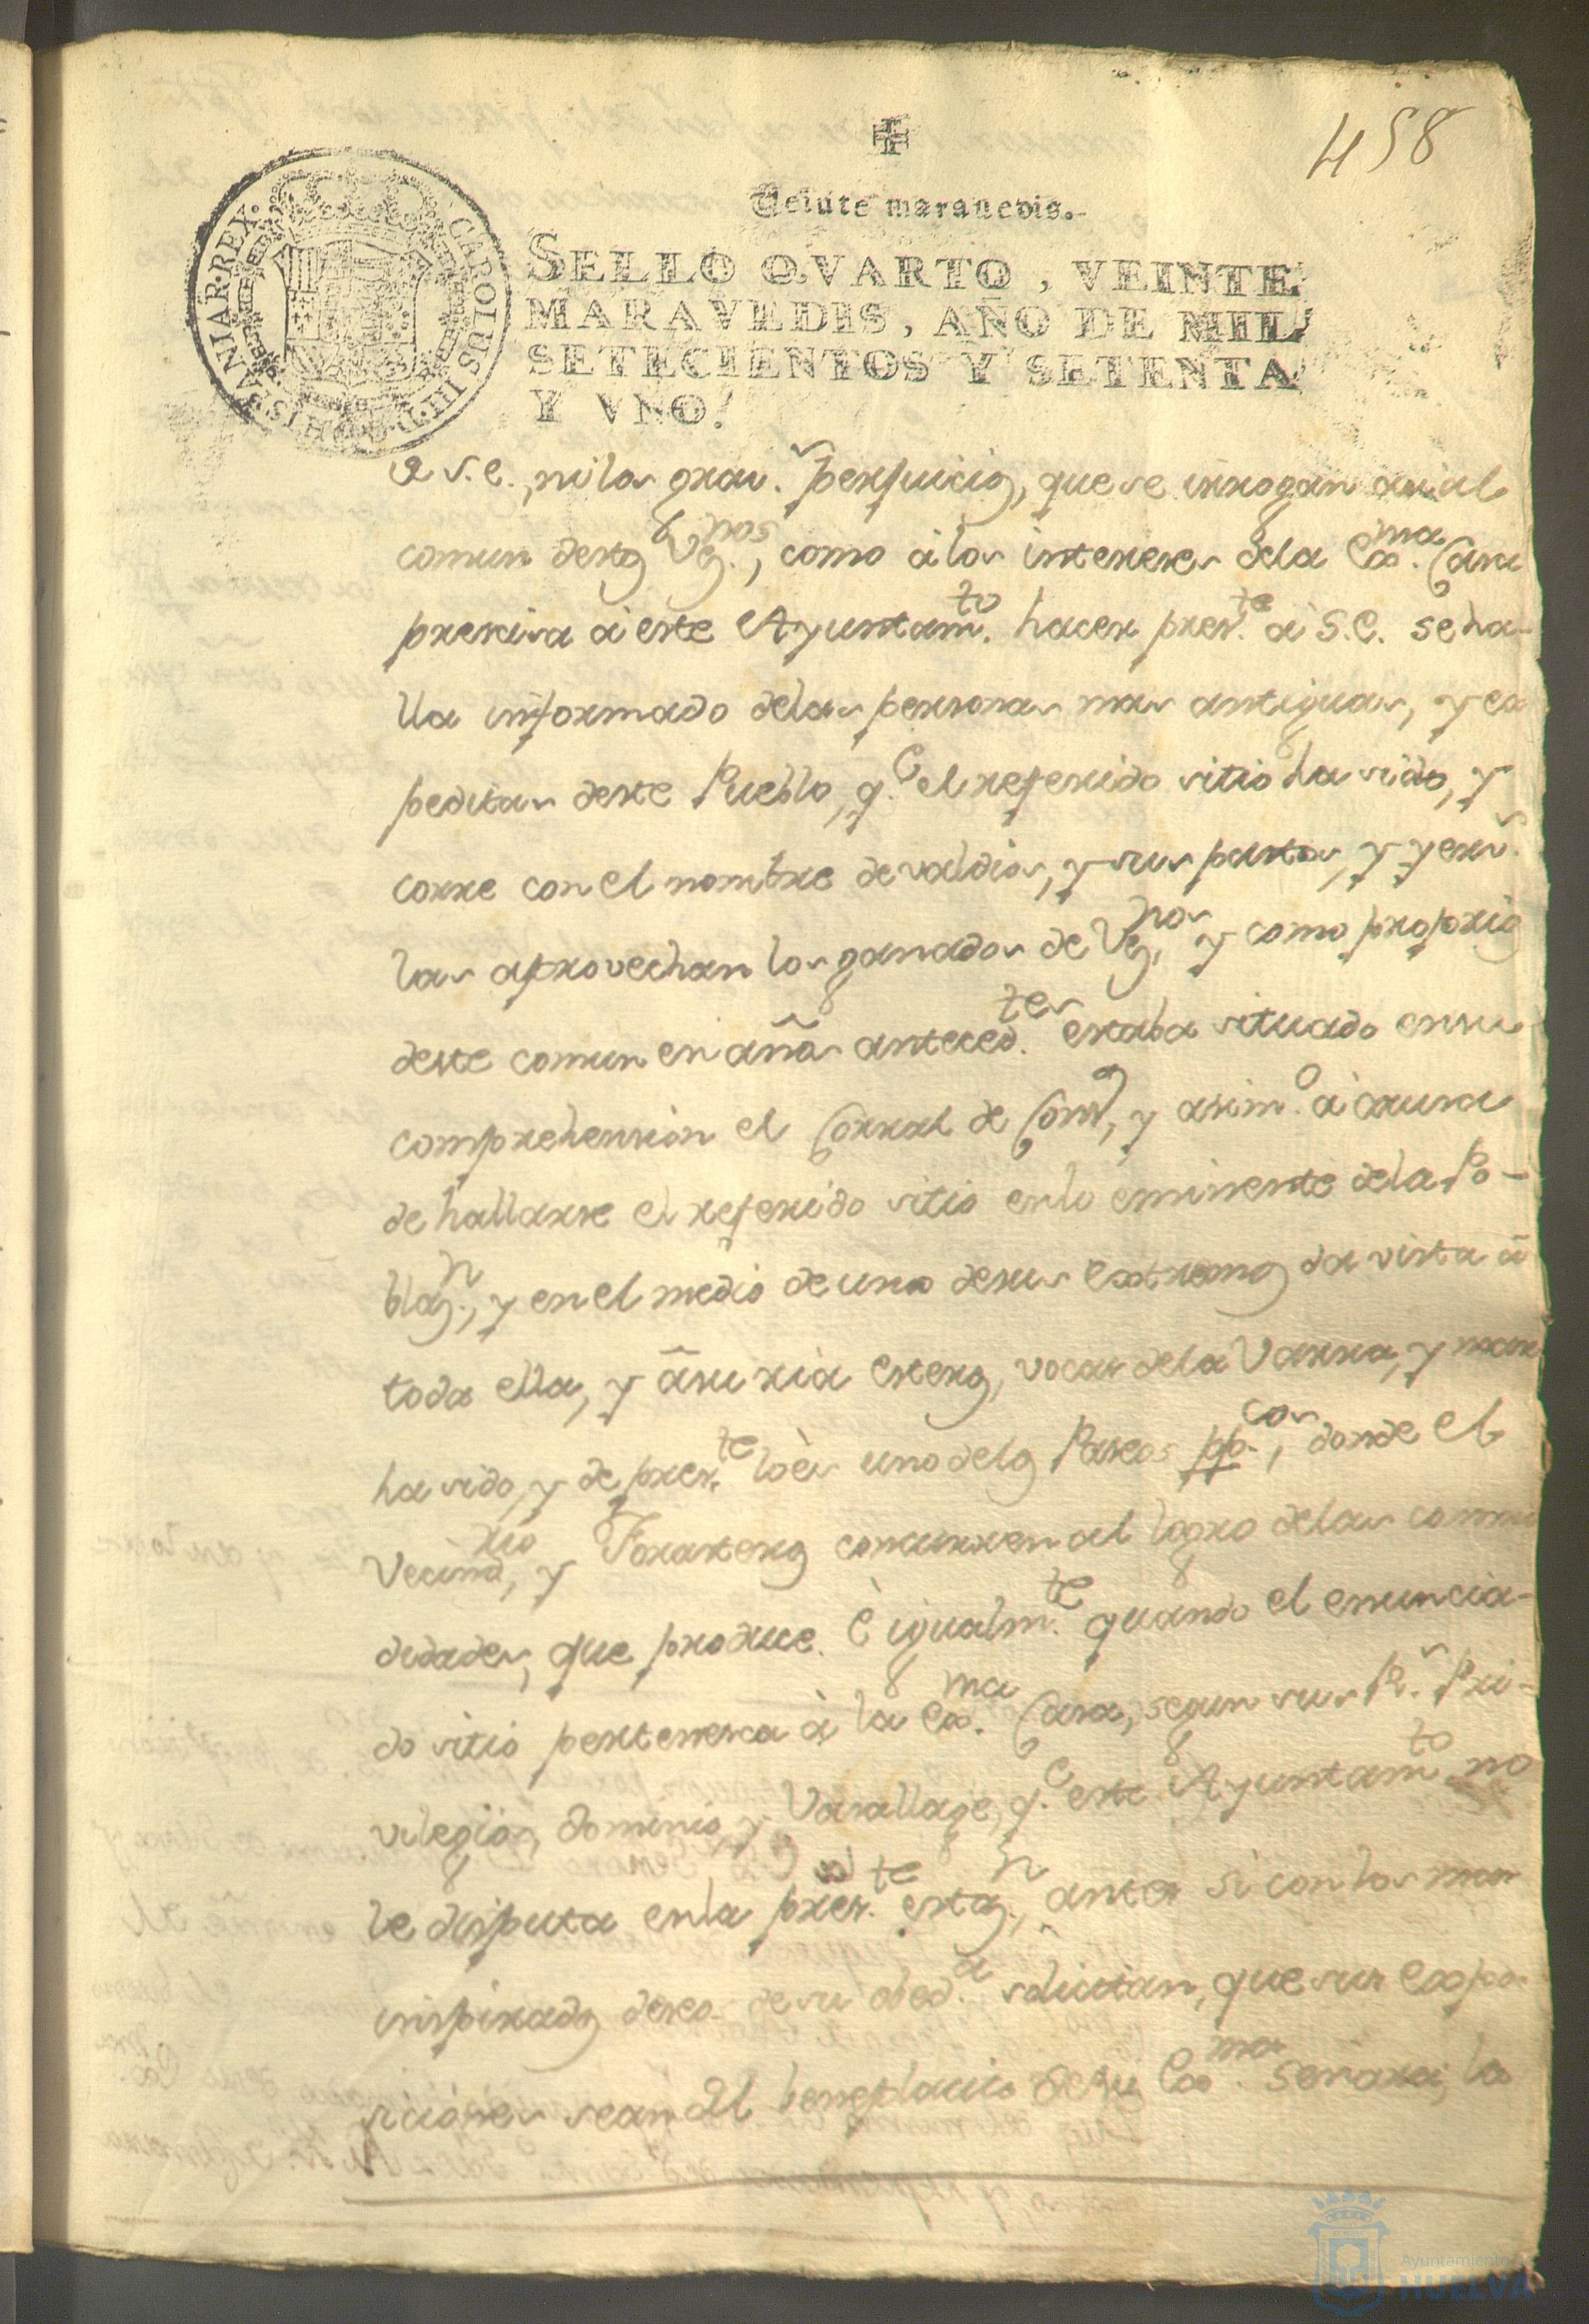 458
Veinte maravedis.
SELLO QVARTO, VEINTE
MARAVEDIS, AÑO DE MIL
SETECIENTOS Y SETENTA
Y VNO.
CAROLUS·III·D·G·HISPANIAR·REX·
a S.E., ni los grav.s perjuicios, que se irrogan asi al
comun destos Vez.nos, como à los intereses dela Exc.ma Casa
presisa à este Ayuntam.to hacer pres.te a S.E. se ha-
lla informado delas personas mas antiguas, y ex
peditas deste Pueblo, q.e el referido sitio ha sido, y
corre con el nombre de valdios, y sus pastos, y yerv.s
las aprovechan los ganados de Vez.nos y como proprio
deste comun en años anteced.tes estaba situado en su
comprehension el Corral de Conso, y asim.o à causa
de hallarse el referido sitio enlo eminente dela Po-
blaz.n, y en el medio de uno desus extremos da vista à
toda ella, y àsu ria esteros, vocas dela Varra, y mar
ha sido, y de pres.te lo ès uno delos Paseos pp.cos, donde el
Vecind.rio, y Forasteros concurren al logro delas commo
didades, que produce. È igualm.te quando el enuncia-
do sitio pertenesca à la Exc.ma Casa, segun sus R.s Pri-
vilegios, dominio, y Vasallage, q.e este Ayuntam.to no
le disputa enla pres.te estaz.n, antes si con los mas
inspirados deseos desu obed.a solicitan, que sus expo
siciones sean del beneplacito de su Exc.ma Señora, la
Ayuntamiento
HUELVA